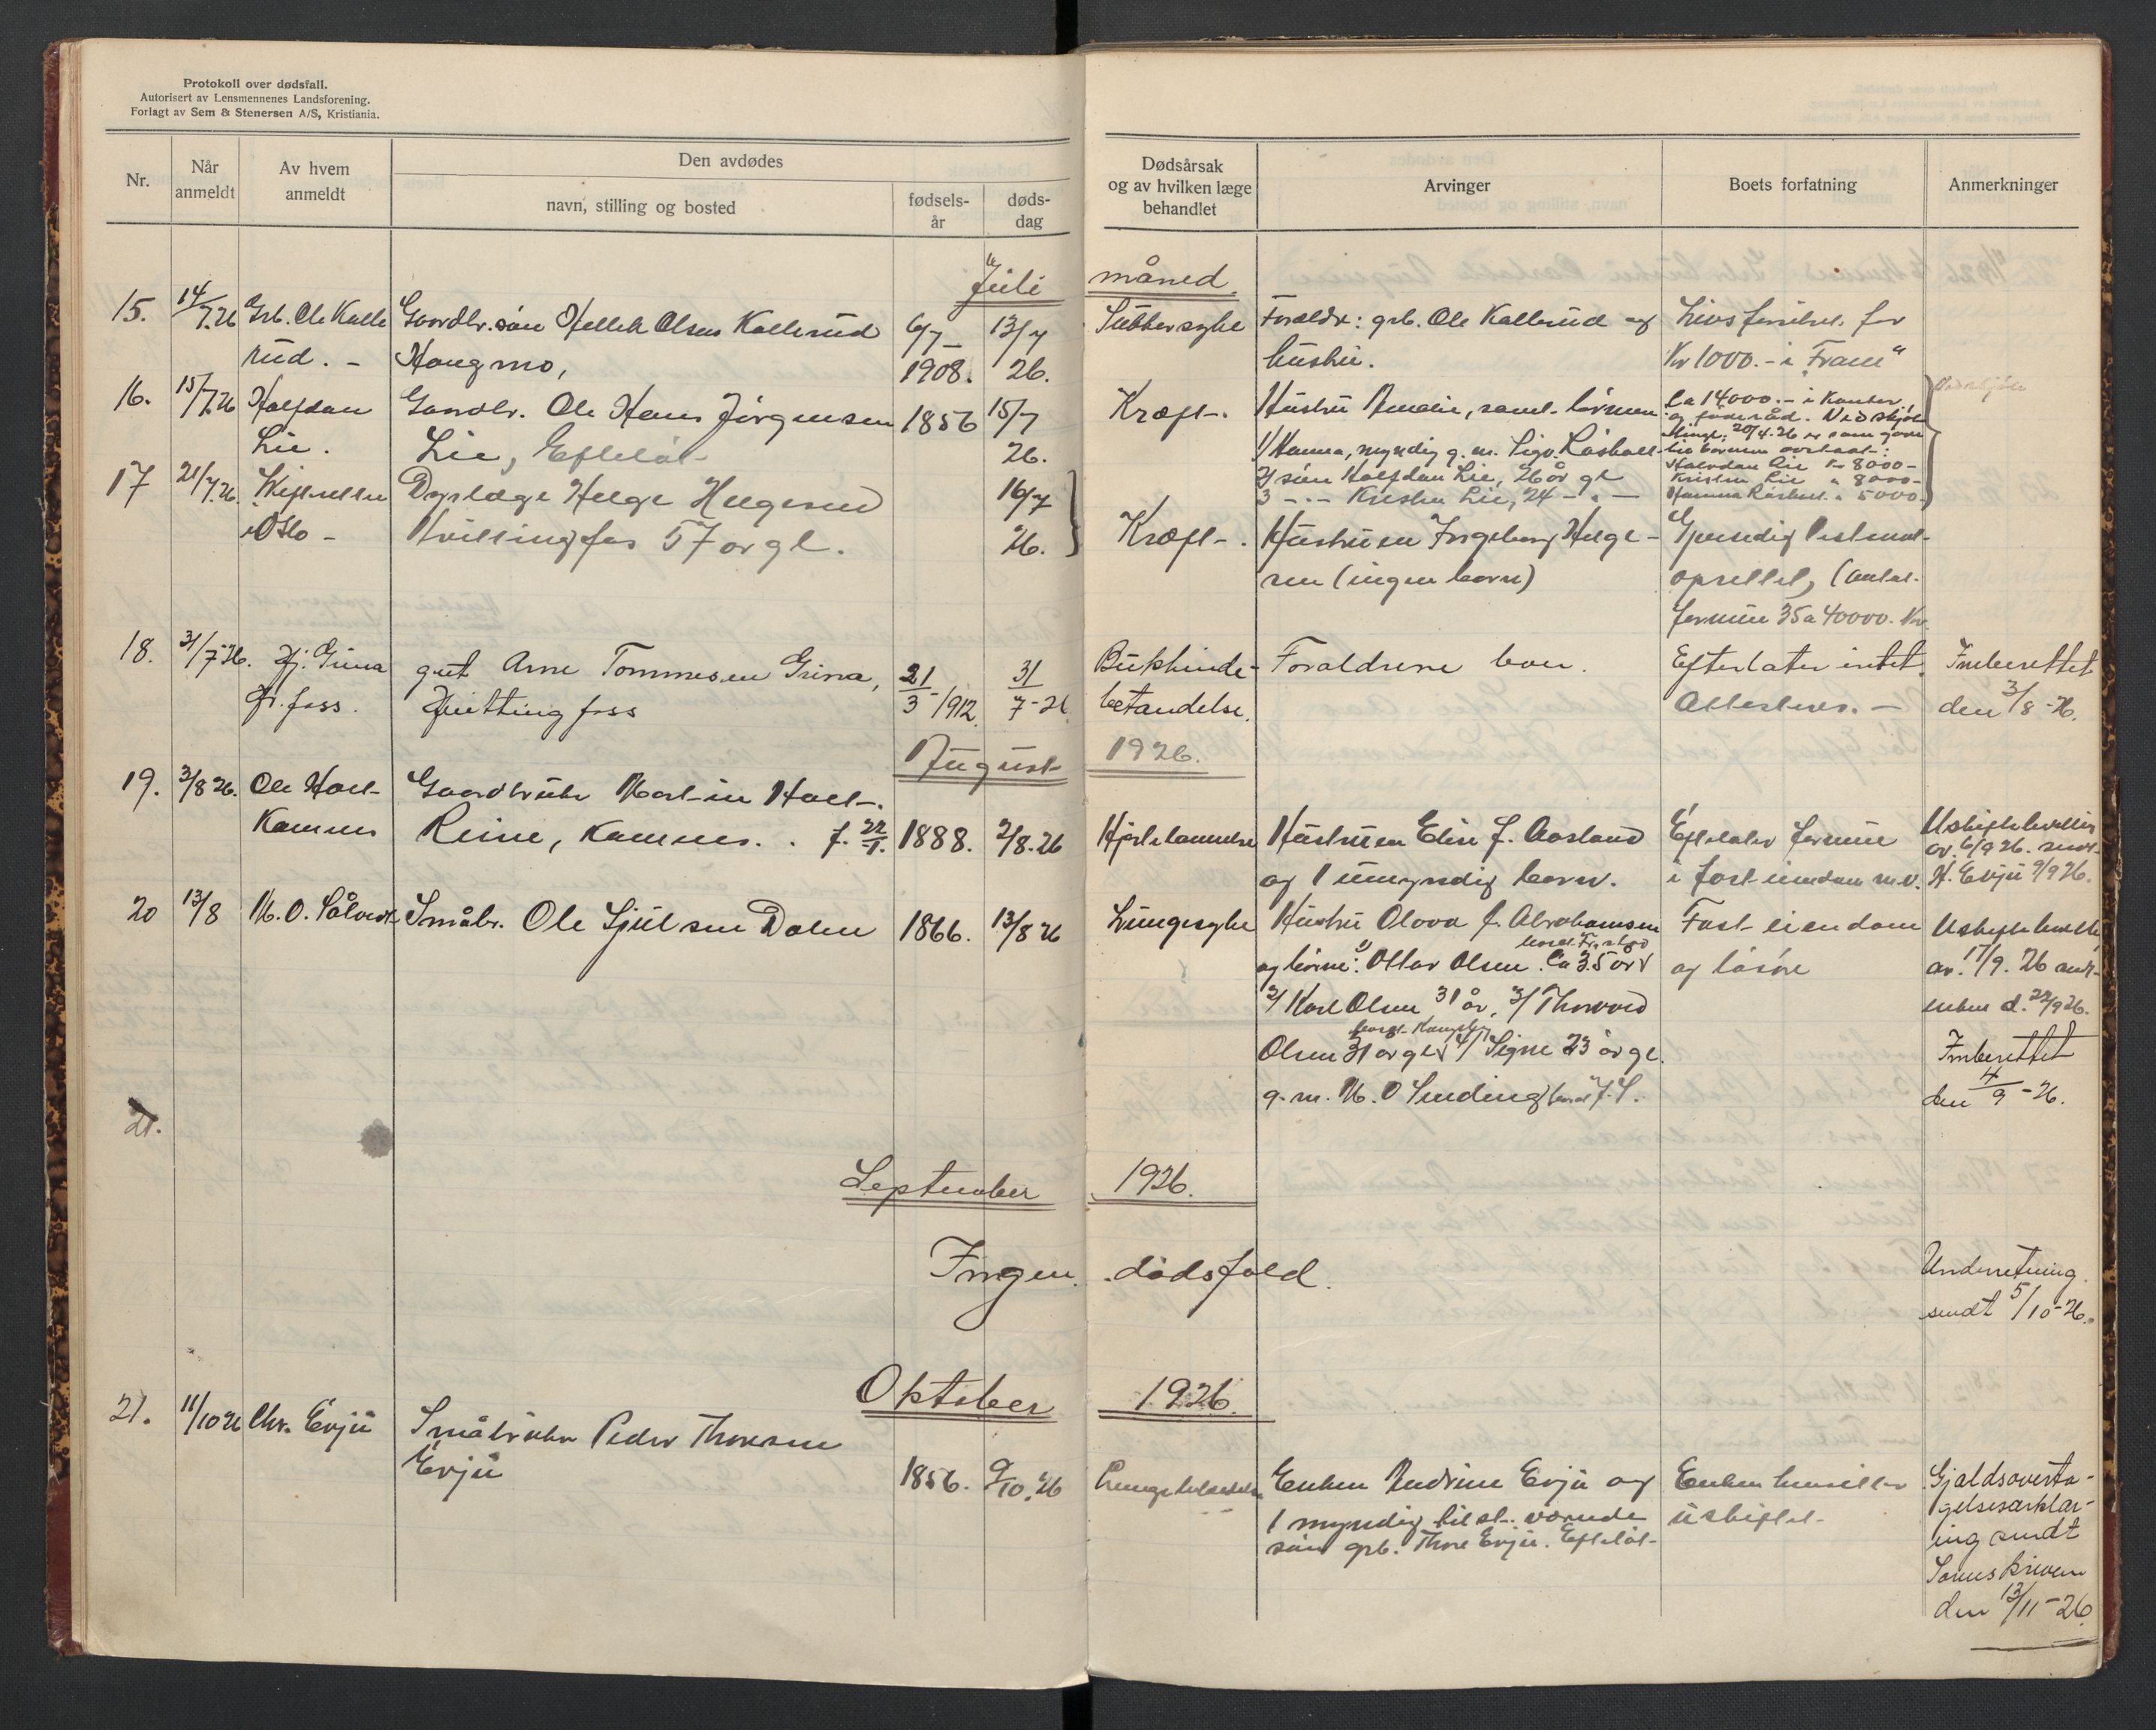 Protokoll over dødsfall.
Autorisert av Lensmennenes Landsforening.
Forlagt av Sem & Stenersen A/S, Kristiania.
Nr.
Når anmeldt
Av hvem anmeldt
Den avdødes
navn, stilling og bosted
fødsels-år
døds-dag
Dødsårsak og av hvilken læge behandlet
Arvinger
Boets forfatning
Anmerkninger
Juli måned.
15. 14/7.26 Grb. Ole Kalle Gaardbr. søn Hellek Olsen Kallerud 6/7 13/7 Sukkersyke Forældr: grb. Ole Kallerud og Livsforsikr. for
rud. - Haugmo, 1908. 26. hustru. Kr 1000.- i "Fram"
16. 15/7.26 Halfdan Gaardbr. Ole Hans Jørgensen 1856 15/7 Kræft. Hustru Amalie, samt børnene Ca 14000.- i Kontor,
Lie. Lie, Efteløt 26. 1/ Hanna, myndig g. m. Sigv.
og føderåd. Vedskjøte
20/4.26
2/ søn Halfdan Lie, 26 år gl Halvdan Lie Kr 8000-
3 - - Kristen Lie, 24 - " - Kristen Lie " 8000-
Hanna " 5000-
17 21/7.26 i Oslo - Dyrlæge Helge Helgesen 16/7 26.
Hvittingfos 57 år gl. Kræft. Hustruen Ingeborg Helge-
sen (ingen børn) Gjensidig testament
oprettet, (antat
formue 35 a 40000. Kr.
18. 31/7-26. Hj. Grina gut Arne Tommesen Grina, 21/3-1912. 31/7-26 Bukhinde- Foraldrene bor. Efterlater intet. Innberettet
H. foss. Hvittingfoss betændelse. den 3/8-26.
August 1926.
19. 3/8 26. Ole Hoel Gaardbruker Martin Hoel
Kamnes Reine, Kamnes. f. 22/1. 1888. 2/8.26 Hjertelammelse Hustruen Elise f. Aasland Efterlater formue Uskiftebevilling
og 1 umyndig barn. i fast eiendom m.v. av. 6/9 26. sendt
H. Evju 9/9 26.
20 13/8 Småbr. Ole Sjulsen Dalen 1866. 13/8 26 Lungesyke Hustru Olava f. Abrahamsen Fast eiendom Uskiftebevilling
og børne: 1/ Ottar Olsen. Ca 35 år og løsøre av. 17/9. 26 sendt
2/ Karl Olsen 31 år, 3/ Thorvald enken d. 22/9 26.
Olsen 31 år gl 4/ Signe 23 år gl. Innberettet
g. m. M. O Sending den 4/9-26.
21.
September 1926.
Ingen dødsfald. Underretning
sendt 5/10-26.
Oktober 1926.
21. 11/10 26 Chr. Evju Småbruker Peder Thoresen
Evju 1856. 9/10.26 Lungebetændelse Enken Andrine Evju og Enken hensitter Gjældsoverta-
1 myndig tilst. værende uskiftet. gelseserklær-
søn grb. Thore Evju. Efteløt ing sendt
Sorenskriveren
den 13/11-26